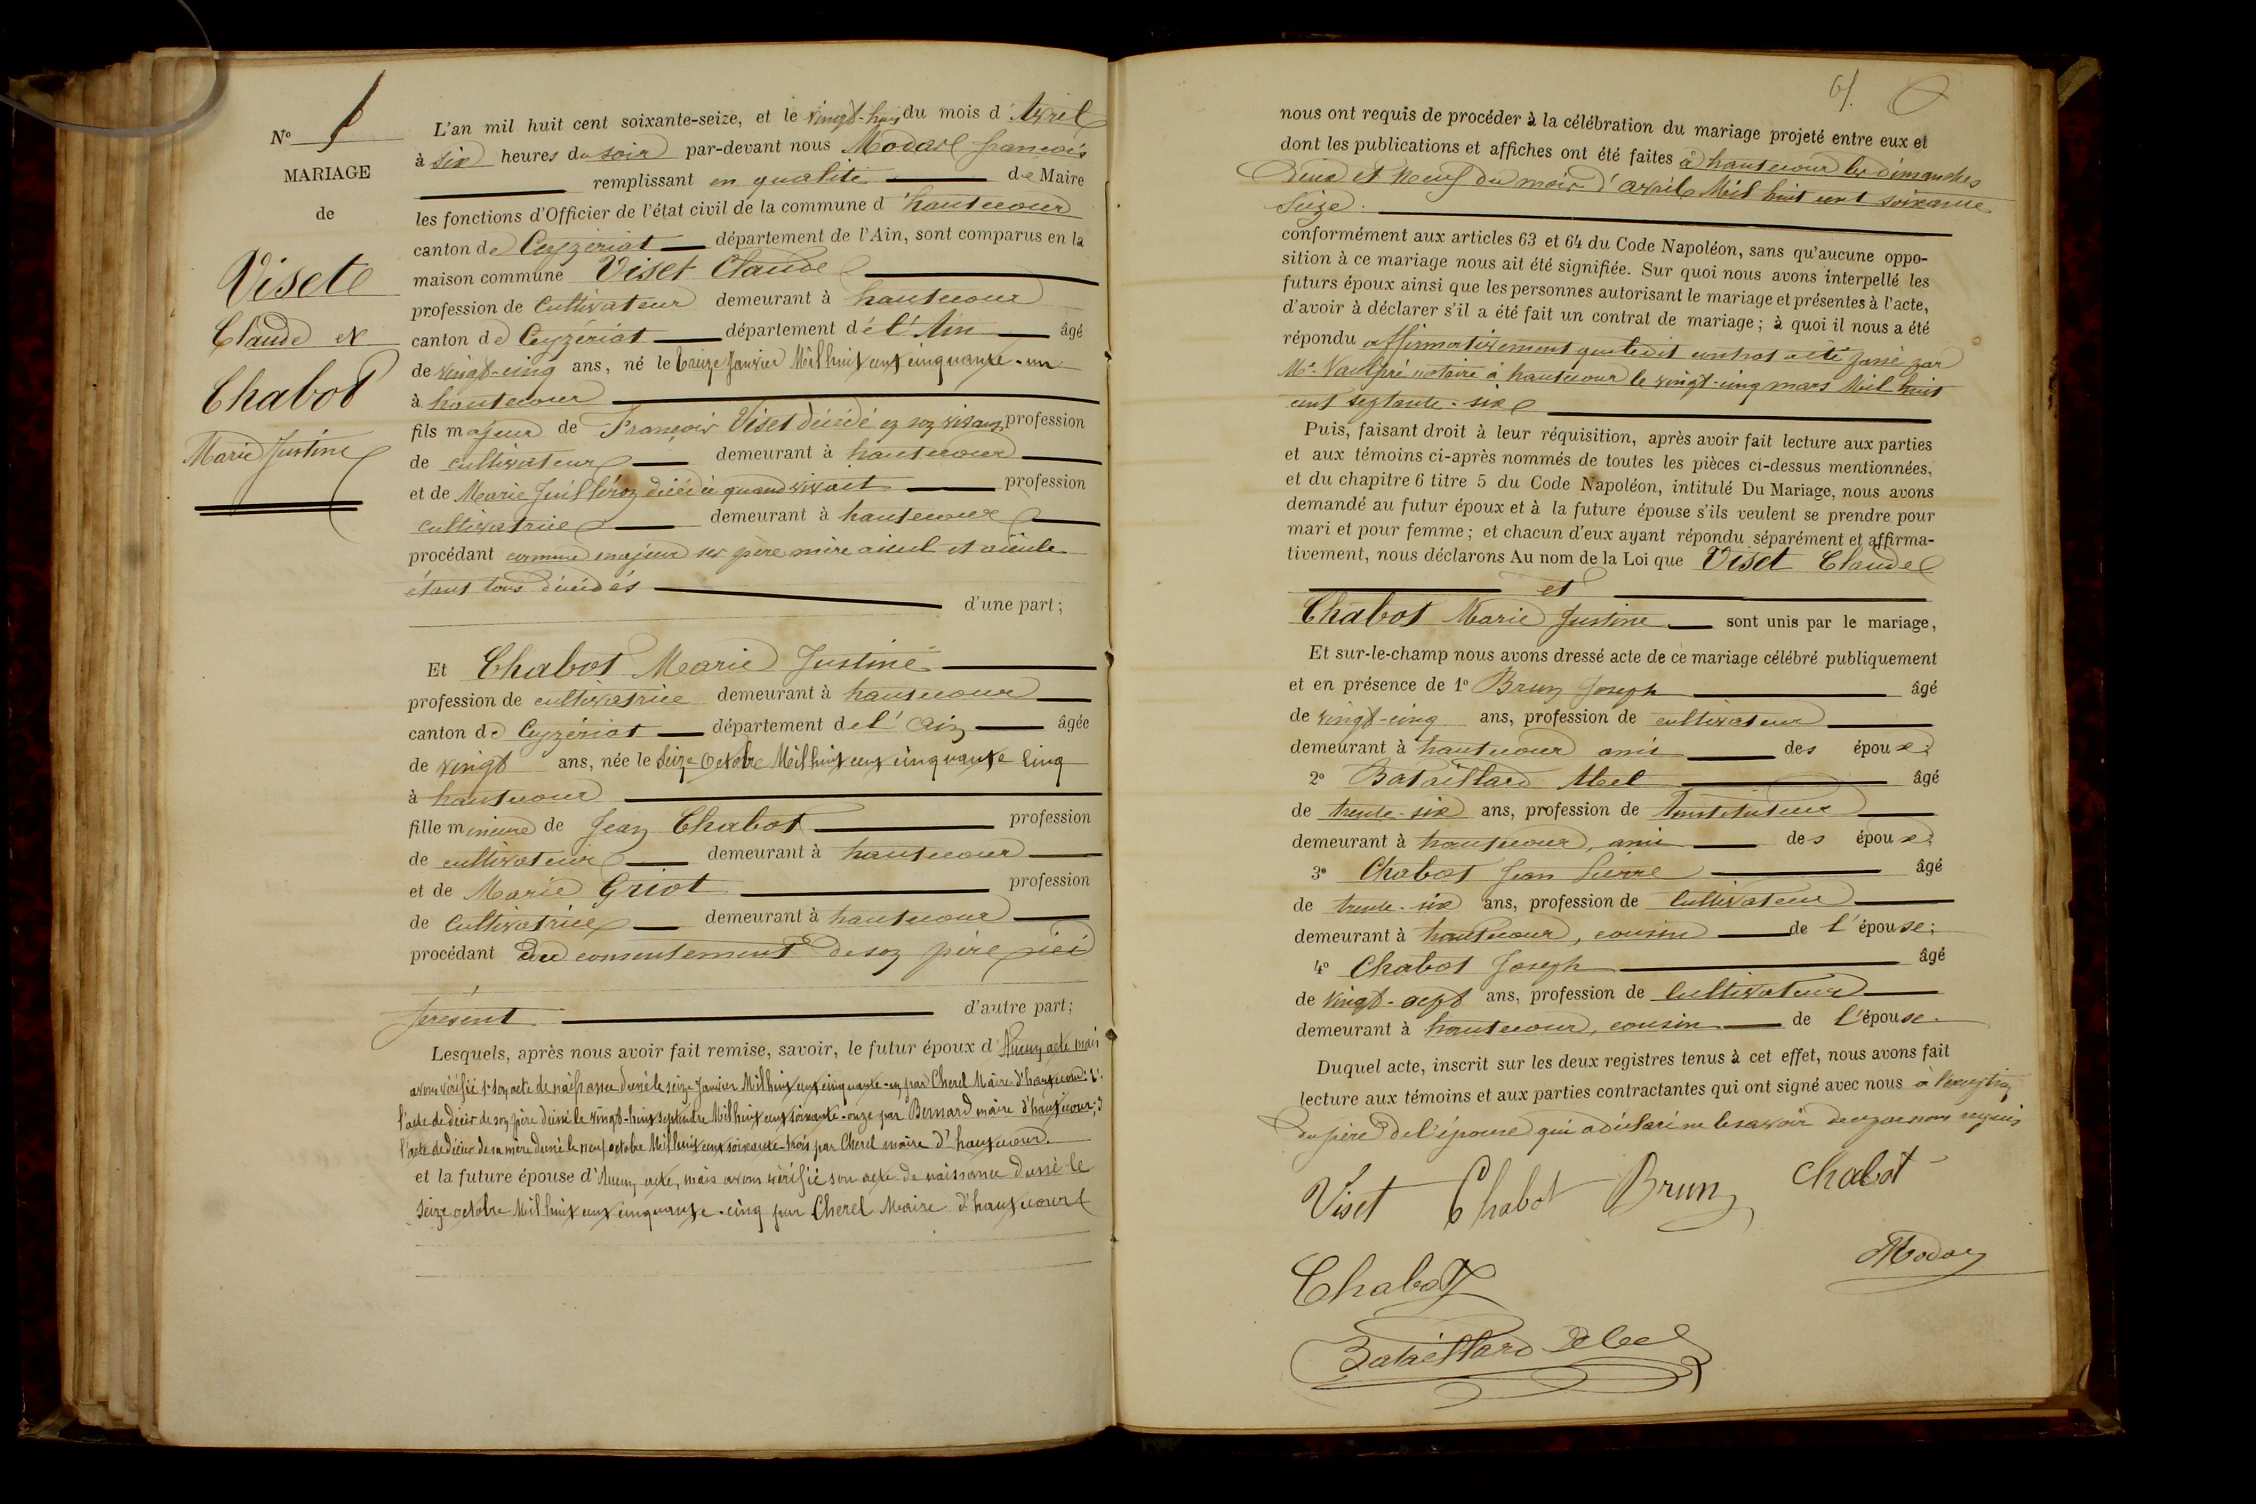 Nº
MARIAGE
de
Viset
Claude et
Chabot
Marie Justine
L'an mil huit cent soixante-seize, et le vingt-huit du mois d'Avril
à six heures du soir par-devant nous Modas françois
remplissant en qualité de Maire
les fonctions d'Officier de l'état civil de la commune d'hautecour
canton de Ceyzériat département de l'Ain, sont comparus en la
maison commune Viset Claude
profession de Cultivateur demeurant à hautecour
canton de Ceyzériat département de l'Ain âgé
de vingt-cinq ans, né le Janvier Mil huit cent cinquante-un
à hautecour
fils majeur de François Viset décédé en son vivant profession
de cultivateur demeurant à hautecour
et de Marie décédée quand vivait profession
cultivatrice demeurant à hautecour
procédant comme majeur ses père mère aieul et aieule
étant tous décédés d'une part;
Et Chabot Marie Justine
profession de cultivatrice demeurant à hautecour
canton de Ceyzériat département de l'Ain âgée
de vingt ans, née le Seize Octobre Mil huit cent cinquante cinq
à hautecour
fille mineure de Jean Chabot profession
de cultivateur demeurant à hautecour
et de Marie Griot profession
de Cultivatrice demeurant à hautecour
procédant du consentement de son père ici
présent d'autre part;
Lesquels, après nous avoir fait remise, savoir, le futur époux d'Aucun acte mais
avons vérifié 1º son acte de naissance dressé le seize Janvier Mil huit cent cinquante-un par Cherel Maire d'hautecour; 2º
l'acte de décès de son père dressé le vingt-huit septembre Mil huit cent soixante-onze par Bernard maire d'hautecour; 3
l'acte de décès de sa mère dressé le neuf octobre Mil huit cent soixante-trois par Cherel maire d'hautecour.
et la future épouse d'Aucun acte, mais avons vérifié son acte de naissance dressé le
seize octobre Mil huit cent cinquante-cinq par Cherel Maire d'hautecour
61.
nous ont requis de procéder à la célébration du mariage projeté entre eux et
dont les publications et affiches ont été faites à hautecour les dimanches
deux et Neuf du mois d'avril Mil huit cent soixante
Seize.
conformément aux articles 63 et 64 du Code Napoléon, sans qu'aucune oppo-
sition à ce mariage nous ait été signifiée. Sur quoi nous avons interpellé les
futurs époux ainsi que les personnes autorisant le mariage et présentes à l'acte,
d'avoir à déclarer s'il a été fait un contrat de mariage; à quoi il nous a été
répondu affirmativement que ledit contrat a été passé par
Me. Vaulpré notaire à hautecour le vingt-cinq mars Mil huit
cent septante-six
Puis, faisant droit à leur réquisition, après avoir fait lecture aux parties
et aux témoins ci-après nommés de toutes les pièces ci-dessus mentionnées,
et du chapitre 6 titre 5 du Code Napoléon, intitulé Du Mariage, nous avons
demandé au futur époux et à la future épouse s'ils veulent se prendre pour
mari et pour femme; et chacun d'eux ayant répondu séparément et affirma-
tivement, nous déclarons Au nom de la Loi que Viset Claude
et
Chabot Marie Justine sont unis par le mariage,
Et sur-le-champ nous avons dressé acte de ce mariage célébré publiquement
et en présence de 1º Brun Joseph âgé
de vingt-cinq ans, profession de cultivateur
demeurant à hautecour ami des époux
2º Bataillard Abel âgé
de trente-six ans, profession de Instituteur
demeurant à hautecour, ami des époux
3º Chabot Jean Pierre âgé
de trente-six ans, profession de Cultivateur
demeurant à hautecour, cousin de l'épouse;
4º Chabot Joseph âgé
de vingt-sept ans, profession de Cultivateur
demeurant à hautecour, cousin de l'épouse.
Duquel acte, inscrit sur les deux registres tenus à cet effet, nous avons fait
lecture aux témoins et aux parties contractantes qui ont signé avec nous à l'exception
du père de l'épouse qui a déclaré ne le savoir de ce par nous requis
Viset Chabot Brun Chabot
Chabot
Bataillard Abel